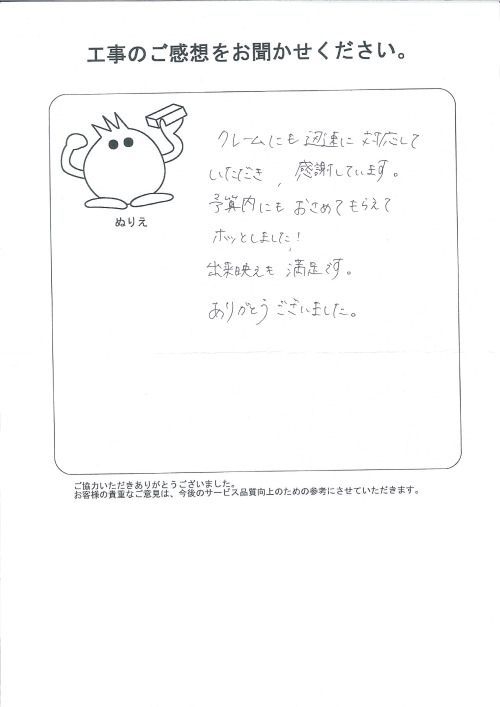 工事のご感想をお聞かせください。
ぬりえ
クレームにも迅速に対応して
いただき、感謝しています。
予算内にもおさめてもらえて
ホッとしました!
出来映えも満足です。
ありがとうございました。
ご協力いただきありがとうございました。
お客様の貴重なご意見は、今後のサービス品質向上のための参考にさせていただきます。